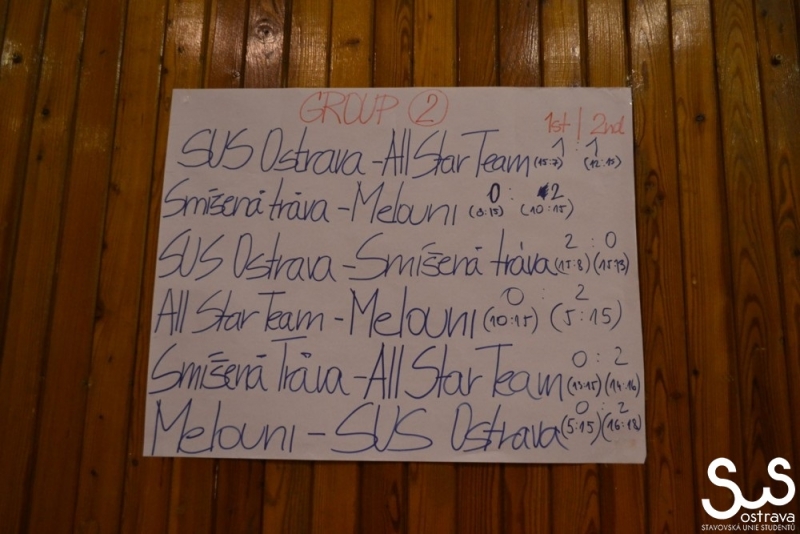 GROUP 2
1st | 2nd
SUS Ostrava - All Star Team 1 : 1 (15:7) (12:15)
Smíšená tráva - Melouni 0 : 2 (8:15) (10:15)
SUS Ostrava - Smíšená tráva 2 : 0 (15:8) (15:13)
All Star Team - Melouni 0 : 2 (10:15) (5:15)
Smíšená Tráva - All Star Team 0 : 2 (13:15) (14:16)
Melouni - SUS Ostrava 0 : 2 (5:15) (16:18)
SUS
ostrava
STAVOVSKÁ UNIE STUDENTŮ